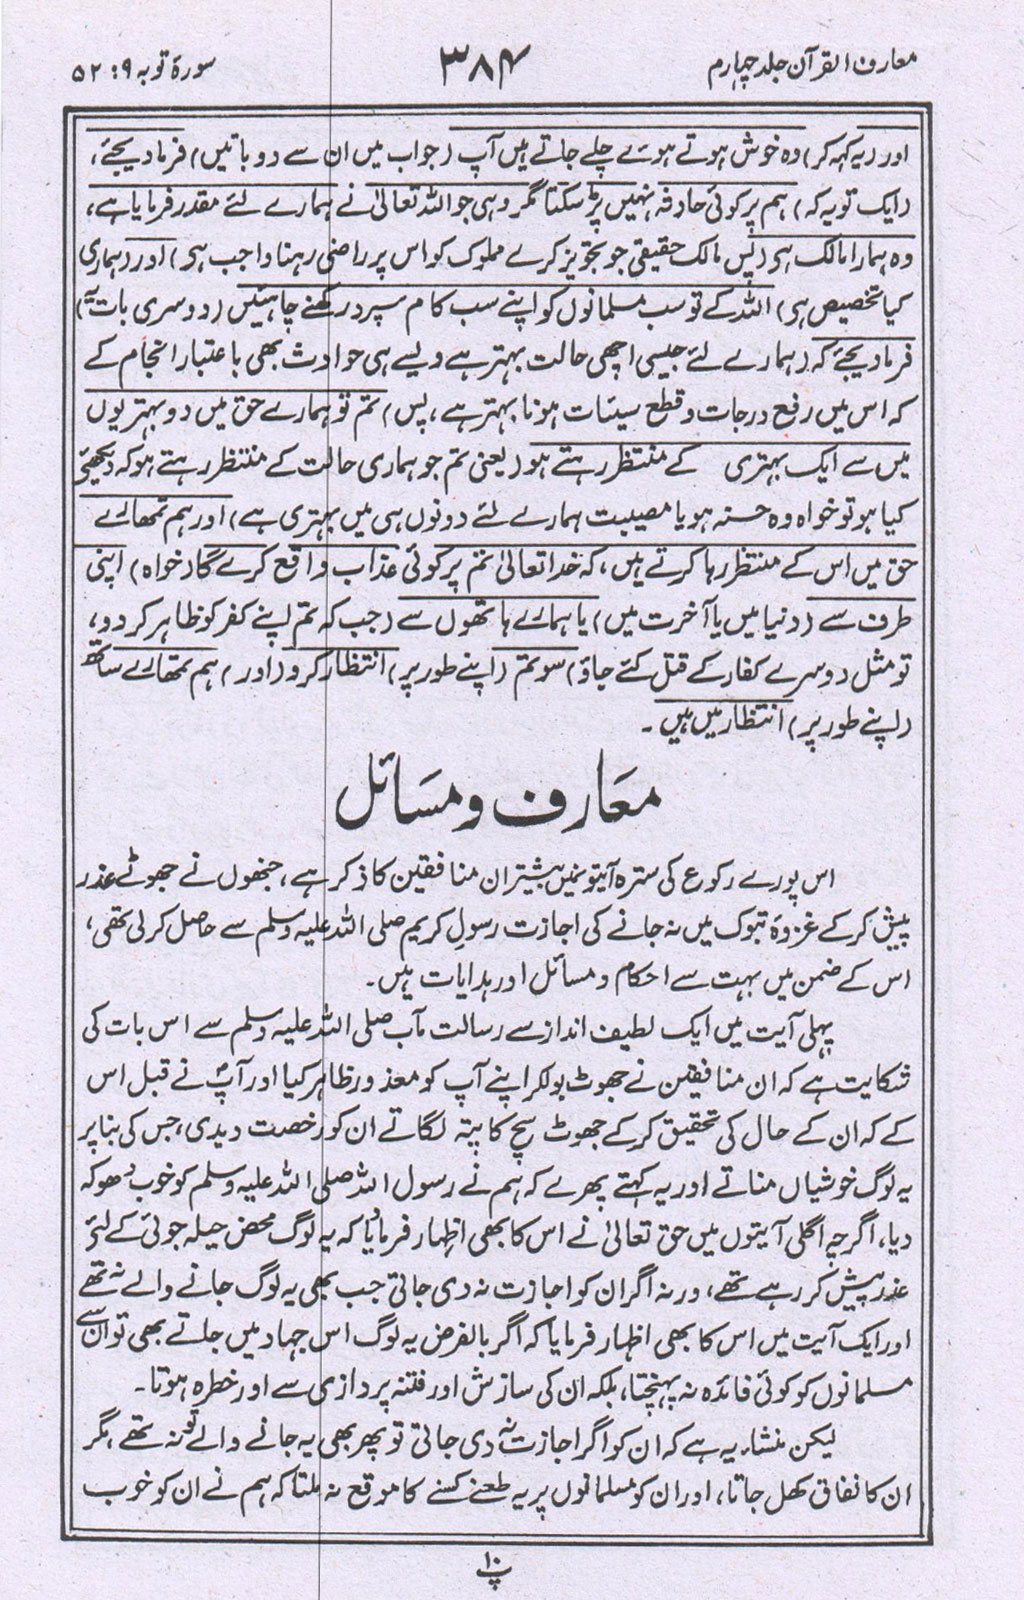 معارف القرآن جلد چہارم
۳۸۴
سورۃ توبہ ۹ : ۵۲
اور (یہ کہہ کر) وہ خوش ہوتے ہوئے چلے جاتے ہیں آپ (جواب میں ان سے دو باتیں) فرما دیجئے،
(ایک تو یہ کہ) ہم پر کوئی حادثہ نہیں پڑ سکتا مگر وہی جو اللہ تعالیٰ نے ہمارے لئے مقدر فرمایا ہے،
وہ ہمارا مالک ہی (پس مالک حقیقی جو تجویز کرے مملوک کو اس پر راضی رہنا واجب ہی) اور (ہماری
کیا تخصیص ہی) اللہ کے تو سب مسلمانوں کو اپنے سب کام سپرد رکھنے چاہئیں (دوسری بات یہ)
فرما دیجئے کہ (ہمارے لئے جیسی اچھی حالت بہتر ہے ویسے ہی حوادث بھی باعتبار انجام کے
کہ اس میں رفع درجات و قطع سیئات ہونا بہتر ہے، پس) تم تو ہمارے حق میں دو بہتریوں
میں سے ایک بہتری کے منتظر رہتے ہو (یعنی تم جو ہماری حالت کے منتظر رہتے ہو کہ دیکھئے
کیا ہو تو خواہ وہ حسنہ ہو یا مصیبت ہمارے لئے دونوں ہی میں بہتری ہے) اور ہم تمھارے
حق میں اس کے منتظر رہا کرتے ہیں، کہ خدا تعالیٰ تم پر کوئی عذاب واقع کرے گا (خواہ) اپنی
طرف سے (دنیا میں یا آخرت میں) یا ہمارے ہاتھوں سے (جب کہ تم اپنے کفر کو ظاہر کر دو،
تو مثل دوسرے کفار کے قتل کئے جاؤ) سو تم (اپنے طور پر) انتظار کرو (اور) ہم تمھارے ساتھ
(اپنے طور پر) انتظار میں ہیں۔
معارف و مسائل
اس پورے رکوع کی سترہ آیتوں میں بیشتر ان منافقین کا ذکر ہے، جنھوں نے جھوٹے عذر
پیش کر کے غزوۃ تبوک میں نہ جانے کی اجازت رسول کریم صلی اللہ علیہ وسلم سے حاصل کر لی تھی،
اس کے ضمن میں بہت سے احکام و مسائل اور ہدایات ہیں۔
پہلی آیت میں ایک لطیف انداز سے رسالت مآب صلی اللہ علیہ وسلم سے اس بات کی
شکایت ہے کہ ان منافقین نے جھوٹ بولکر اپنے آپ کو معذور ظاہر کیا اور آپؐ نے قبل اس
کے کہ ان کے حال کی تحقیق کر کے جھوٹ سچ کا پتہ لگاتے ان کو رخصت دیدی، جس کی بنا پر
یہ لوگ خوشیاں مناتے اور یہ کہتے پھرے کہ ہم نے رسول اللہ صلی اللہ علیہ وسلم کو خوب دھوکہ
دیا، اگرچہ اگلی آیتوں میں حق تعالیٰ نے اس کا بھی اظہار فرمادیا کہ یہ لوگ محض حیلہ جوئی کے لئے
عذر پیش کر رہے تھے، ورنہ اگر ان کو اجازت نہ دی جاتی جب بھی یہ لوگ جانے والے نہ تھے
اور ایک آیت میں اس کا بھی اظہار فرمایا کہ اگر بالفرض یہ لوگ اس جہاد میں جاتے بھی تو ان سے
مسلمانوں کو کوئی فائدہ نہ پہنچتا، بلکہ ان کی سازش اور فتنہ پردازی سے اور خطرہ ہوتا۔
لیکن منشاء یہ ہے کہ ان کو اگر اجازت نہ دی جاتی تو پھر بھی یہ جانے والے تو نہ تھے، مگر
ان کا نفاق کھل جاتا، اور ان کو مسلمانوں پر یہ طعنے کسنے کا موقع نہ ملتا کہ ہم نے ان کو خوب
پ ۱۰